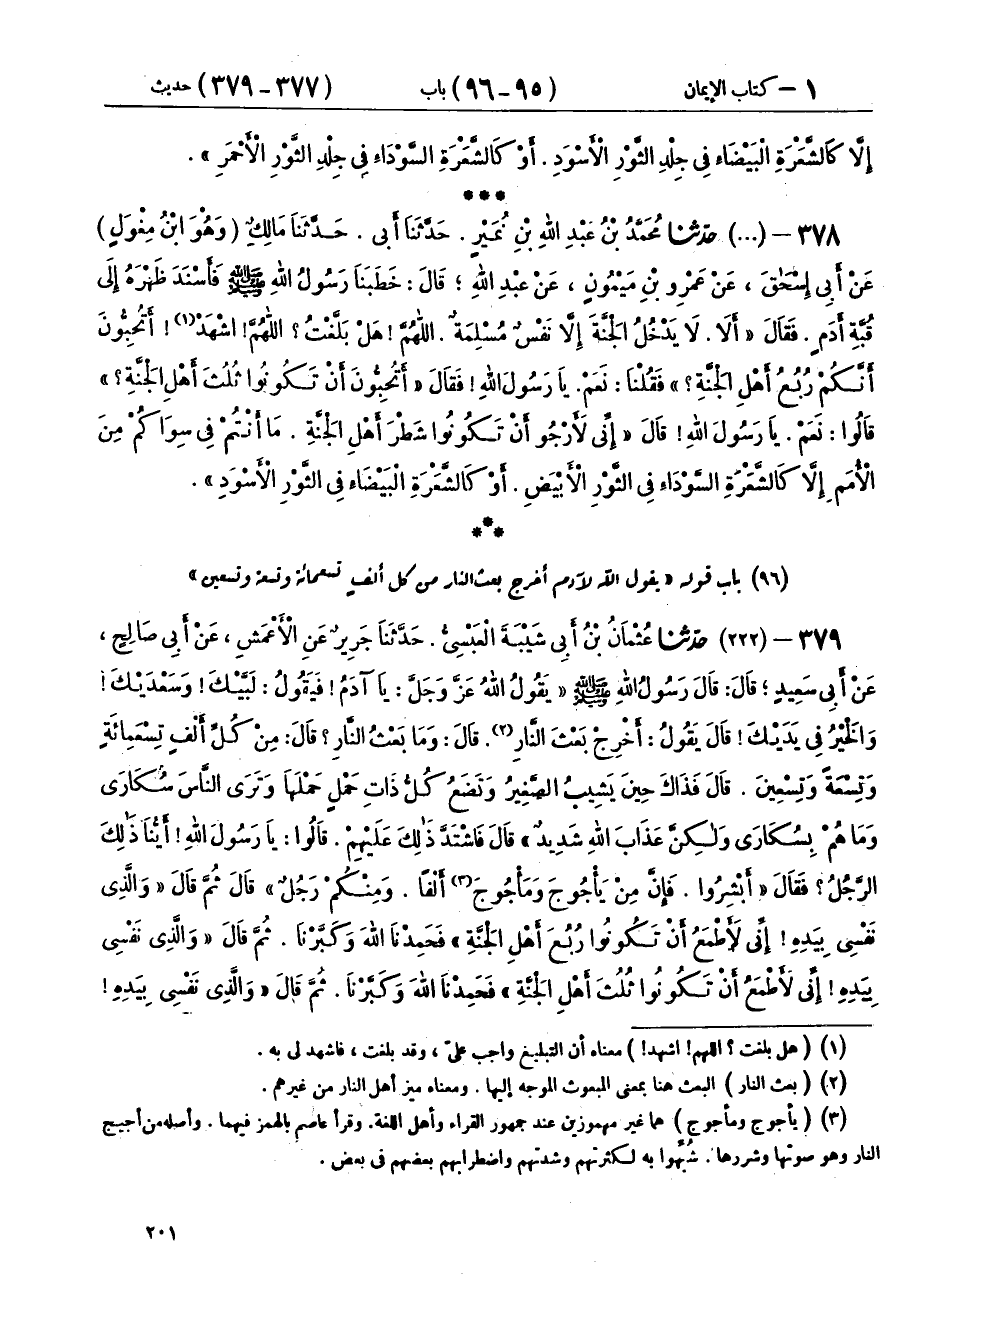 ١ – كتاب الإيمان (٩٥ – ٩٦) باب (٣٧٧ – ٣٧٩) حديث
إِلَّا كَالشَّعَرَةِ الْبَيْضَاءِ فِي جِلْدِ الثَّوْرِ الْأَسْوَدِ . أَوْ كَالشَّعَرَةِ السَّوْدَاءِ فِي جِلْدِ الثَّوْرِ الْأَحْمَرِ » .
***
٣٧٨ – (...) حدّثنا مُحَمَّدُ بْنُ عَبْدِ اللهِ بْنِ نُمَيْرٍ . حَدَّثَنَا أَبِي . حَدَّثَنَا مَالِكٌ ( وَهُوَ ابْنُ مِغْوَلٍ )
عَنْ أَبِي إِسْحَٰقَ ، عَنْ عَمْرِو بْنِ مَيْمُونٍ ، عَنْ عَبْدِ اللهِ ؛ قَالَ : خَطَبَنَا رَسُولُ اللهِ ﷺ فَأَسْنَدَ ظَهْرَهُ إِلَى
قُبَّةِ أَدَمٍ . فَقَالَ « أَلَا . لَا يَدْخُلُ الْجَنَّةَ إِلَّا نَفْسٌ مُسْلِمَةٌ . اللَّهُمَّ ! هَلْ بَلَّغْتُ ؟ اللَّهُمَّ ! اشْهَدْ(١) ! أَتُحِبُّونَ
أَنَّكُمْ رُبُعُ أَهْلِ الْجَنَّةِ ؟ » فَقُلْنَا : نَعَمْ. يَا رَسُولَ اللهِ ! فَقَالَ « أَتُحِبُّونَ أَنْ تَكُونُوا ثُلُثَ أَهْلِ الْجَنَّةِ ؟ »
قَالُوا : نَعَمْ . يَا رَسُولَ اللهِ ! قَالَ « إِنِّي لَأَرْجُو أَنْ تَكُونُوا شَطْرَ أَهْلِ الْجَنَّةِ . مَا أَنْتُمْ فِي سِوَاكُمْ مِنَ
الْأُمَمِ إِلَّا كَالشَّعَرَةِ السَّوْدَاءِ فِي الثَّوْرِ الْأَبْيَضِ . أَوْ كَالشَّعَرَةِ الْبَيْضَاءِ فِي الثَّوْرِ الْأَسْوَدِ » .
***
(٩٦) باب قوله « يقول الله لآدم أخرج بعث النار من كل ألف تسعمائة وتسعة وتسعين »
٣٧٩ – (٢٢٢) حدّثنا عُثْمَانُ بْنُ أَبِي شَيْبَةَ الْعَبْسِيُّ . حَدَّثَنَا جَرِيرٌ عَنِ الْأَعْمَشِ ، عَنْ أَبِي صَالِحٍ ،
عَنْ أَبِي سَعِيدٍ ؛ قَالَ: قَالَ رَسُولُ اللهِ ﷺ « يَقُولُ اللهُ عَزَّ وَجَلَّ : يَا آدَمُ ! فَيَقُولُ : لَبَّيْكَ ! وَسَعْدَيْكَ !
وَالْخَيْرُ فِي يَدَيْكَ ! قَالَ يَقُولُ : أَخْرِجْ بَعْثَ النَّارِ(٢). قَالَ : وَمَا بَعْثُ النَّارِ ؟ قَالَ: مِنْ كُلِّ أَلْفٍ تِسْعَمِائَةٍ
وَتِسْعَةً وَتِسْعِينَ . قَالَ فَذَاكَ حِينَ يَشِيبُ الصَّغِيرُ وَتَضَعُ كُلُّ ذَاتِ حَمْلٍ حَمْلَهَا وَتَرَى النَّاسَ سُكَارَى
وَمَا هُمْ بِسُكَارَى وَلَٰكِنَّ عَذَابَ اللهِ شَدِيدٌ » قَالَ فَاشْتَدَّ ذَٰلِكَ عَلَيْهِمْ . قَالُوا : يَا رَسُولَ اللهِ ! أَيُّنَا ذَٰلِكَ
الرَّجُلُ ؟ فَقَالَ « أَبْشِرُوا . فَإِنَّ مِنْ يَأْجُوجَ وَمَأْجُوجَ(٣) أَلْفًا . وَمِنْكُمْ رَجُلٌ » قَالَ ثُمَّ قَالَ « وَالَّذِي
نَفْسِي بِيَدِهِ ! إِنِّي لَأَطْمَعُ أَنْ تَكُونُوا رُبُعَ أَهْلِ الْجَنَّةِ » فَحَمِدْنَا اللهَ وَكَبَّرْنَا . ثُمَّ قَالَ « وَالَّذِي نَفْسِي
بِيَدِهِ ! إِنِّي لَأَطْمَعُ أَنْ تَكُونُوا ثُلُثَ أَهْلِ الْجَنَّةِ » فَحَمِدْنَا اللهَ وَكَبَّرْنَا . ثُمَّ قَالَ « وَالَّذِي نَفْسِي بِيَدِهِ !
(١) ( هل بلغت ؟ اللهم ! اشهد ! ) معناه أن التبليغ واجب علىّ ، وقد بلغت ، فاشهد لى به .
(٢) ( بعث النار ) البعث هنا بمعنى المبعوث الموجه إليها . ومعناه ميز أهل النار من غيرهم .
(٣) ( يأجوج ومأجوج ) هما غير مهموزين عند جمهور القراء وأهل اللغة. وقرأ عاصم بالهمز فيهما . وأصله من أجيج
النار وهو صوتها وشررها . شُبِّهوا به لكثرتهم وشدتهم واضطرابهم بعضهم فى بعض .
٢٠١